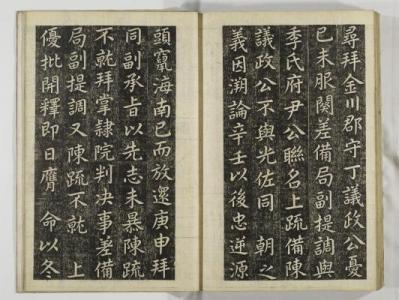 尋拜金川郡守丁議政公憂
己未服闋差備局副提調與
季氏府尹公聯名上疏備陳
議政公不與光佐同 朝之
義因溯論辛壬以後忠逆源
頭竄海南已而放還庚申拜
同副承旨以先志未暴陳疏
不就拜掌隷院判决事差備
局副提調又陳疏不就 上
優批開釋即日膺 命以冬